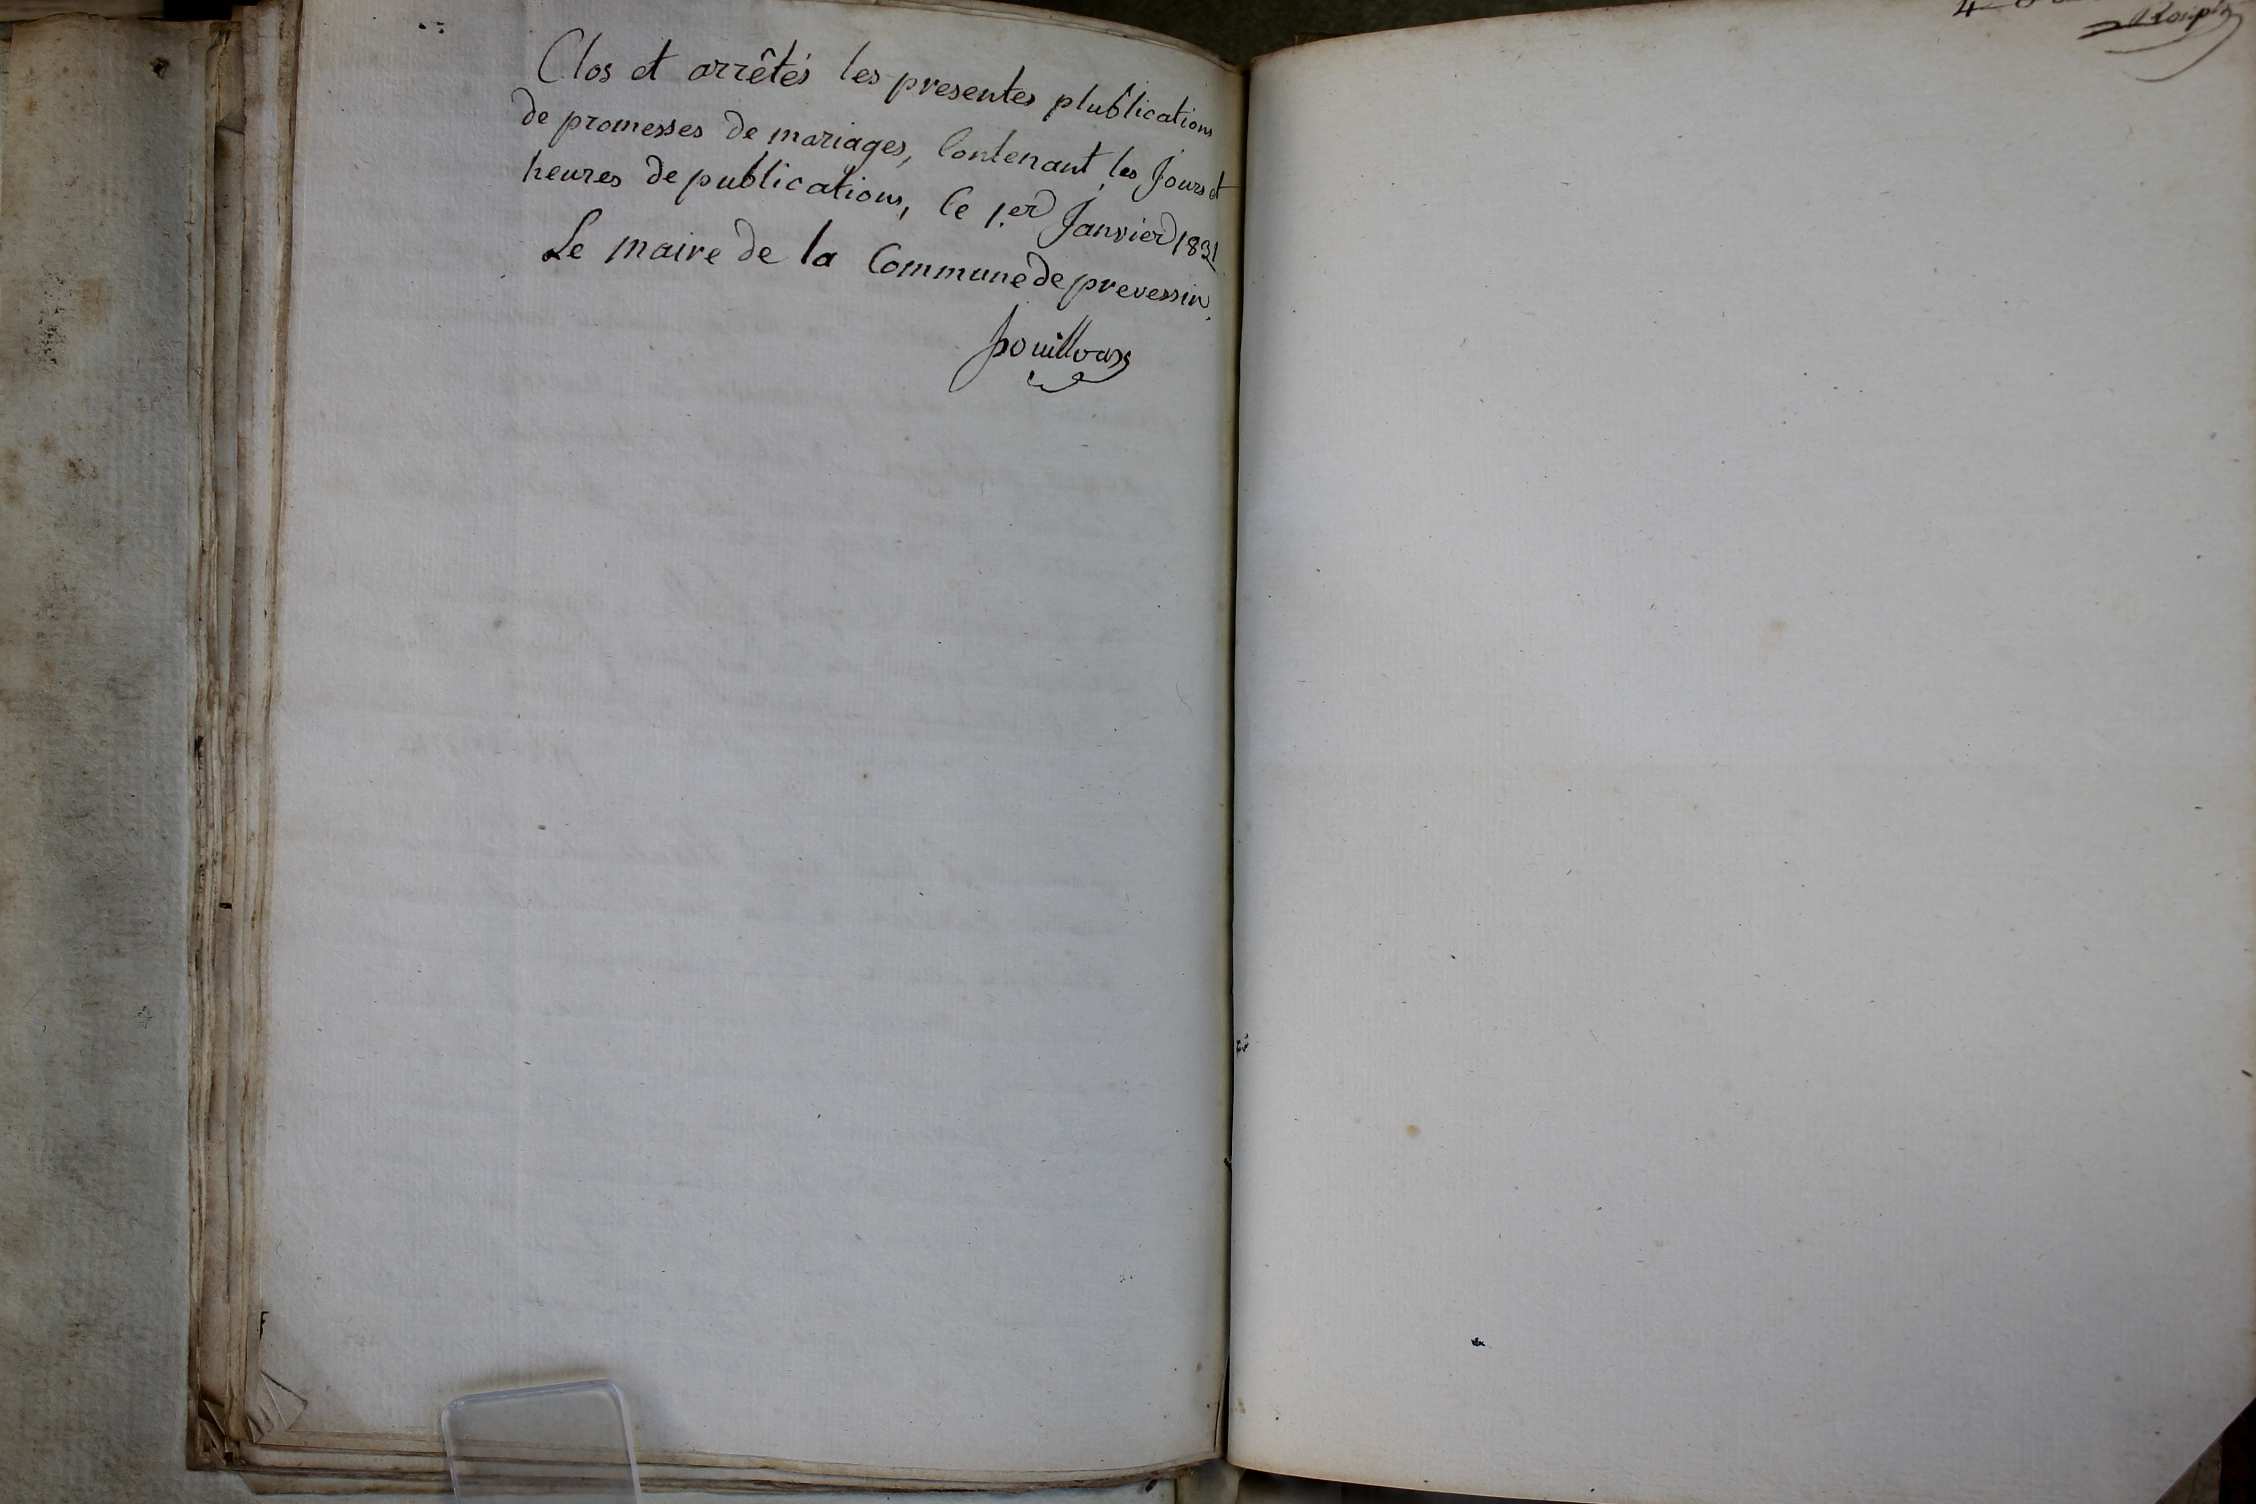 Clos et arrêtés les presentes plublications
de promesses de mariages, Contenant les Jours et
heures de publications, Ce 1.er Janvier 1831
Le maire de la Commune de prevessin.